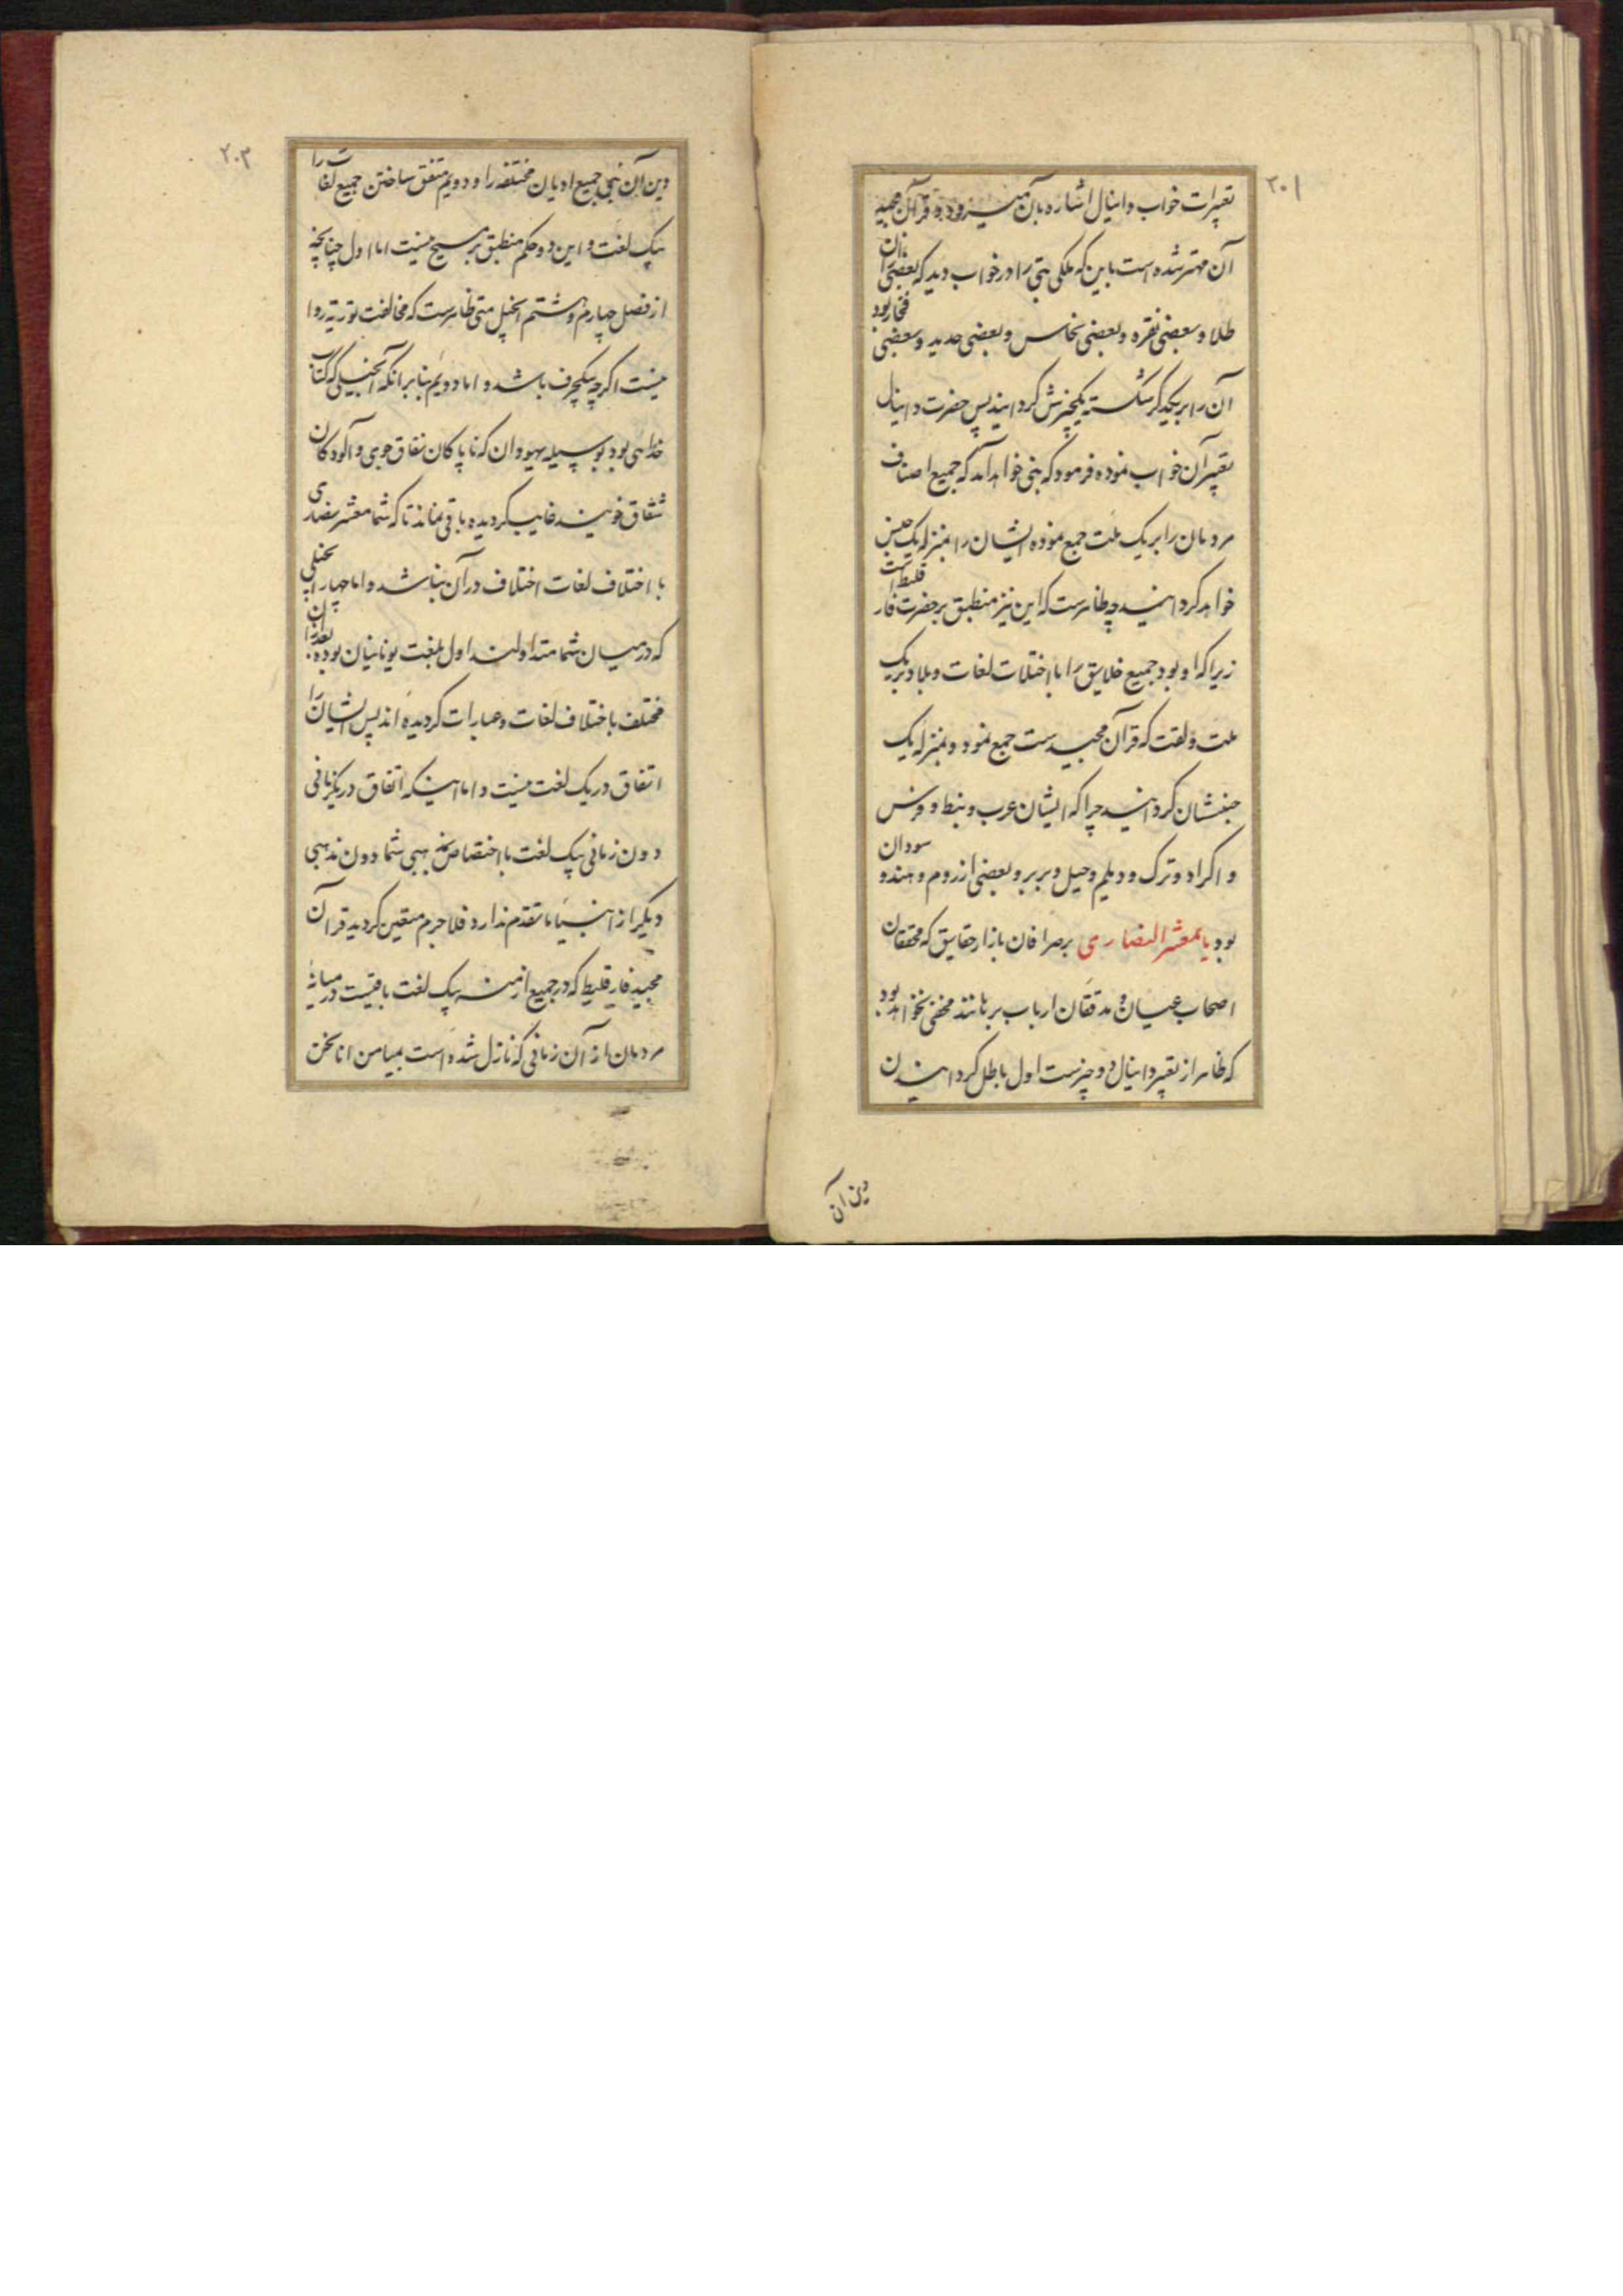 ۲۰۱
تعبیرات خواب دانیال اشاره بآن میرود و قرآن مجید
آن مهتر شده است باین که ملکی بتی را در خواب دید که بعضی از آن
طلا و بعضی نقره و بعضی نحاس و بعضی حدید و بعضی فخار بود
آن را بر یکدیگر شکسته یکچیزش گردانید پس حضرت دانیال
تعبیر آن خواب نموده فرمود که نبی خواهد آمد که جمیع اصناف
مردمان را بر یک ملت جمع نموده ایشان را بمنزله یک جنس
خواهد گردانید چه ظاهرست که این نیز منطبق بر حضرت فارقلیط است
زیرا که او بود جمیع خلایق را با اختلات لغات و بلاد بر یک
ملت و لغت که قرآن مجید ست جمع نمود و بمنزله یک
جنسشان گردانید چرا که ایشان عرب و نبط و فرس
و اکراد و ترک و دیلم و جیل و بربر و بعضی از روم و هند و سودان
بود یا معشر النصاری بر صرافان بازار حقایق که محققان
اصحاب عیان و مدققان ارباب برهانند مخفی نخواهد بود
که ظاهر از تعبیر دانیال دو چیزست اول باطل گردانیدن
دین آن
۲۰۳
دین آن نبی جمیع ادیان مختلفه را و دویم متفق ساختن جمیع لغات را
بیک لغت و این دو حکم منطبق بر مسیح نیست اما اول چنانچه
از فصل چهارم و هشتم انجیل متی ظاهرست که مخالفت توریة روا
نیست اگرچه بیکحرف باشد و اما دویم بنابر آنکه انجیلی که کتاب
خدا هی بود بوسیله یهودان که ناپاکان نفاق جوی و آلودکان
شقاق خویند غایب گردیده باقی نماند تا که شما معشر نصاری
با اختلاف لغات اختلاف در آن بناشد و اما چهار انجیلی
که در میان شما متداولند اول بلغت یونانیان بوده بعد از آن
مختلف باختلاف لغات و عبارات گردیده اند پس ایشان را
اتفاق در یک لغت نیست و اما اینکه اتفاق در یکزمانی
دون زمانی بیک لغت با اختصاص بمذهبی شما دون مذهبی
دیگر از انبیا ما تقدم ندارد فلاجرم متعین گردید قرآن
مجید فارقلیط که در جمیع ازمنه بیک لغت باقیست در میانه
مردمان از آن زمانی که نازل شده است بمیامن انا نحن